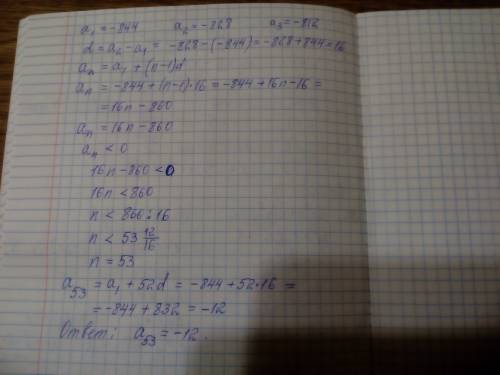 a₁ = -844 a₂ = -828 a₃ = -812
d = a₂ - a₁ = -828 - (-844) = -828 + 844 = 16
aₙ = a₁ + (n-1)d
aₙ = -844 + (n-1)·16 = -844 + 16n - 16 =
= 16n - 860
aₙ = 16n - 860
aₙ < 0
16n - 860 < 0
16n < 860
n < 860 : 16
n < 53 12/16
n = 53
a₅₃ = a₁ + 52d = -844 + 52·16 =
= -844 + 832 = -12
Ответ: a₅₃ = -12.